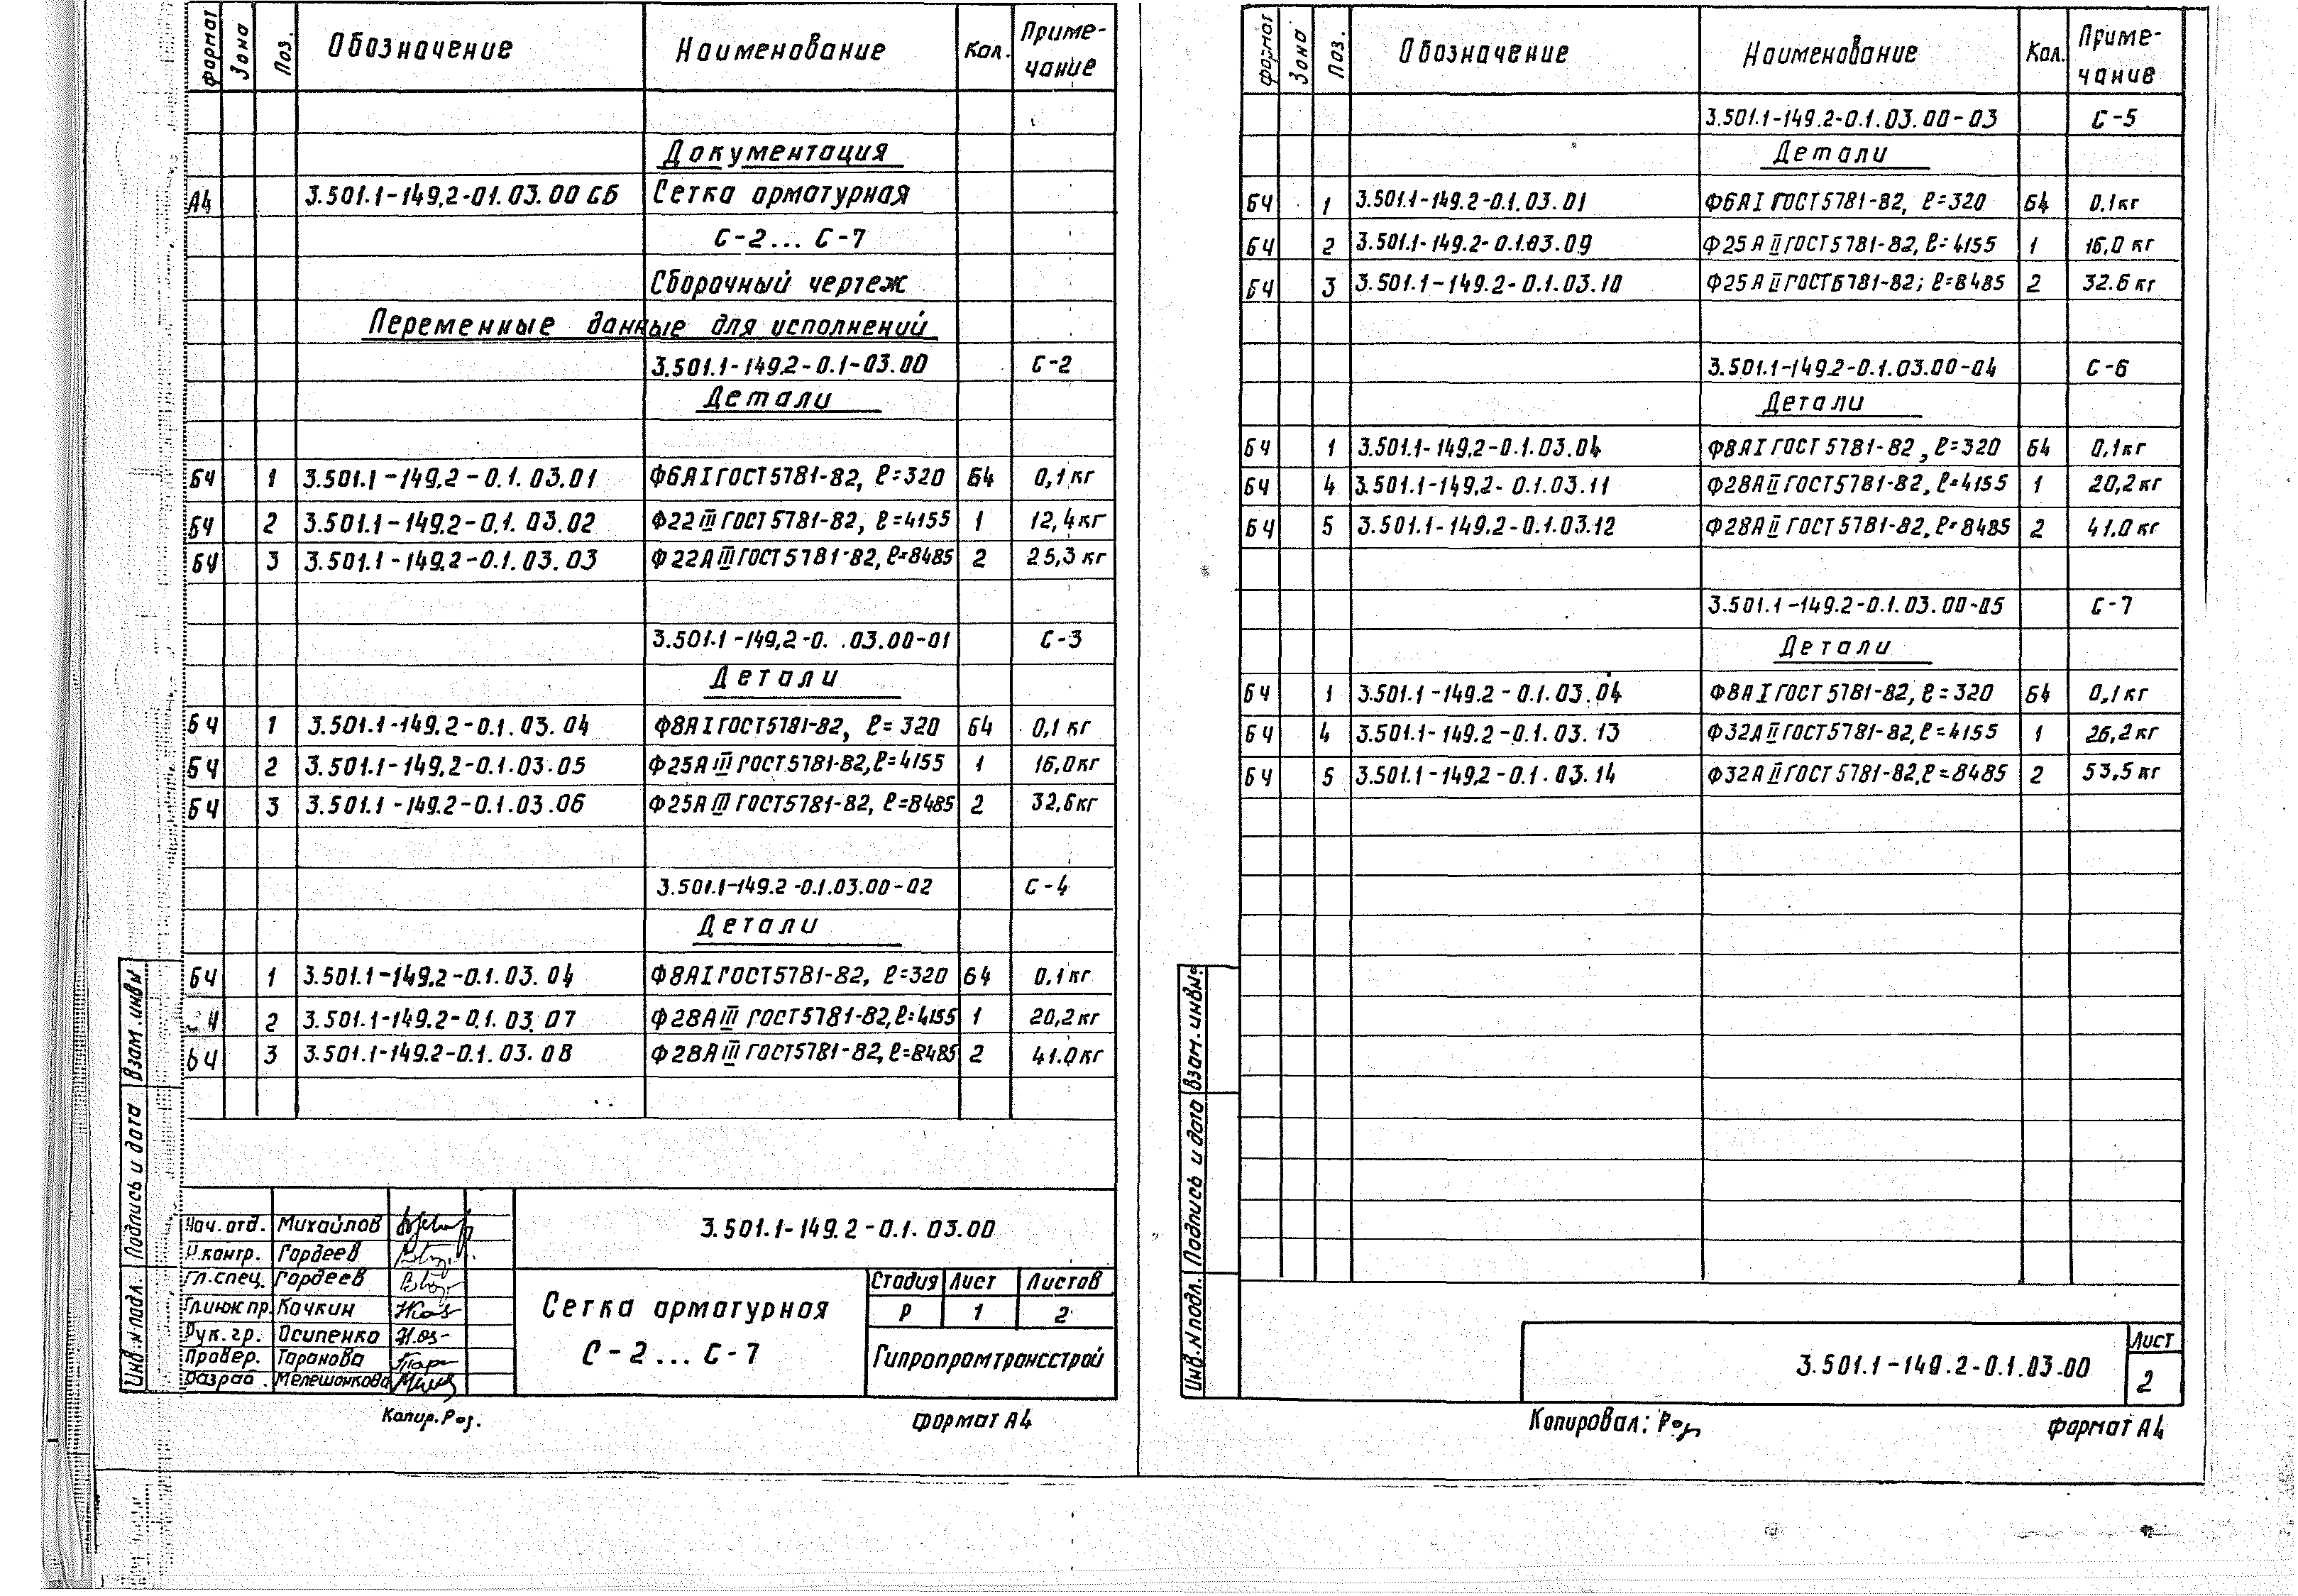 Формат Зона Поз. Обозначение Наименование Кол. Приме-
чание
Документация
А4 3.501.1-149.2-01.03.00 СБ Сетка арматурная
С-2... С-7
Сборочный чертеж
Переменные данные для исполнений
3.501.1-149.2-0.1-03.00 С-2
Детали
БЧ 1 3.501.1-149.2-0.1.03.01 Ф6АI ГОСТ 5781-82, ℓ=320 64 0,1кг
БЧ 2 3.501.1-149.2-0.1.03.02 Ф22III ГОСТ 5781-82, ℓ=4155 1 12,4кг
БЧ 3 3.501.1-149.2-0.1.03.03 Ф22АIII ГОСТ 5781-82, ℓ=8485 2 25,3кг
3.501.1-149,2-0. .03.00-01 С-3
Детали
БЧ 1 3.501.1-149.2-0.1.03.04 Ф8АI ГОСТ 5781-82, ℓ=320 64 0,1кг
БЧ 2 3.501.1-149.2-0.1.03.05 Ф25АIII ГОСТ 5781-82, ℓ=4155 1 16,0кг
БЧ 3 3.501.1-149.2-0.1.03.06 Ф25АIII ГОСТ 5781-82, ℓ=8485 2 32,6кг
3.501.1-149.2-0.1.03.00-02 С-4
Детали
БЧ 1 3.501.1-149.2-0.1.03.04 Ф8АI ГОСТ 5781-82, ℓ=320 64 0,1кг
Ч 2 3.501.1-149.2-0.1.03.07 Ф28АIII ГОСТ 5781-82, ℓ=4155 1 20,2кг
БЧ 3 3.501.1-149.2-0.1.03.08 Ф28АIII ГОСТ 5781-82, ℓ=8485 2 41.0кг
Взам. инв N
Подпись и дата
Инв. N подл.
Нач. отд. Михайлов
Н.контр. Гордеев
Гл.спец. Гордеев
Гл.инж пр. Качкин
Рук. гр. Осипенко
Провер. Таранова
Разраб. Мелешонкова
3.501.1-149.2-0.1.03.00
Сетка арматурная
С-2... С-7
Стадия Лист Листов
Р 1 2
Гипропромтрансстрой
Копир.
Формат А4
Формат Зона Поз. Обозначение Наименование Кол. Приме-
чание
3.501.1-149.2-0.1.03.00-03 С-5
Детали
БЧ 1 3.501.1-149.2-0.1.03.01 Ф6АI ГОСТ 5781-82, ℓ=320 64 0,1кг
БЧ 2 3.501.1-149.2-0.1.03.09 Ф25АII ГОСТ 5781-82, ℓ=4155 1 16,0кг
БЧ 3 3.501.1-149.2-0.1.03.10 Ф25АII ГОСТ 5781-82; ℓ=8485 2 32.6кг
3.501.1-149.2-0.1.03.00-04 С-6
Детали
БЧ 1 3.501.1-149.2-0.1.03.04 Ф8АI ГОСТ 5781-82, ℓ=320 64 0,1кг
БЧ 4 3.501.1-149.2-0.1.03.11 Ф28АII ГОСТ 5781-82, ℓ=4155 1 20,2кг
БЧ 5 3.501.1-149.2-0.1.03.12 Ф28АII ГОСТ 5781-82, ℓ=8485 2 41.0кг
3.501.1-149.2-0.1.03.00-05 С-7
Детали
БЧ 1 3.501.1-149.2-0.1.03.04 Ф8АI ГОСТ 5781-82, ℓ=320 64 0,1кг
БЧ 4 3.501.1-149.2-0.1.03.13 Ф32АII ГОСТ 5781-82, ℓ=4155 1 26,2кг
БЧ 5 3.501.1-149.2-0.1.03.14 Ф32АII ГОСТ 5781-82, ℓ=8485 2 53,5кг
Взам. инв №
Подпись и дата
Инв. N подл.
3.501.1-149.2-0.1.03.00
Лист
2
Копировал:
Формат А4